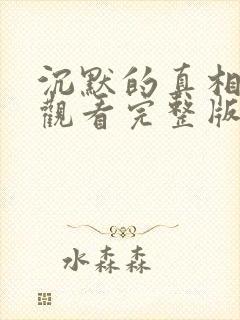 沉默的真相
觀看完整版
水森森